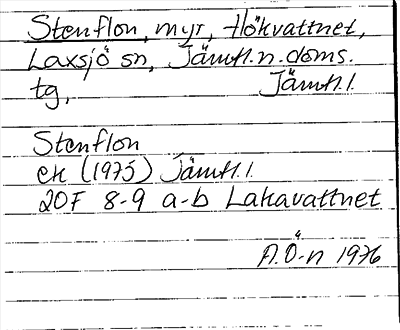 Stenflon, myr, Hökvattnet,
Laxsjö sn, Jämtl. n. doms.
tg, Jämtl. l.
Stenflon
ek (1975) Jämtl. l.
20F 8-9 a-b Lakavattnet
A.Ö-n 1976